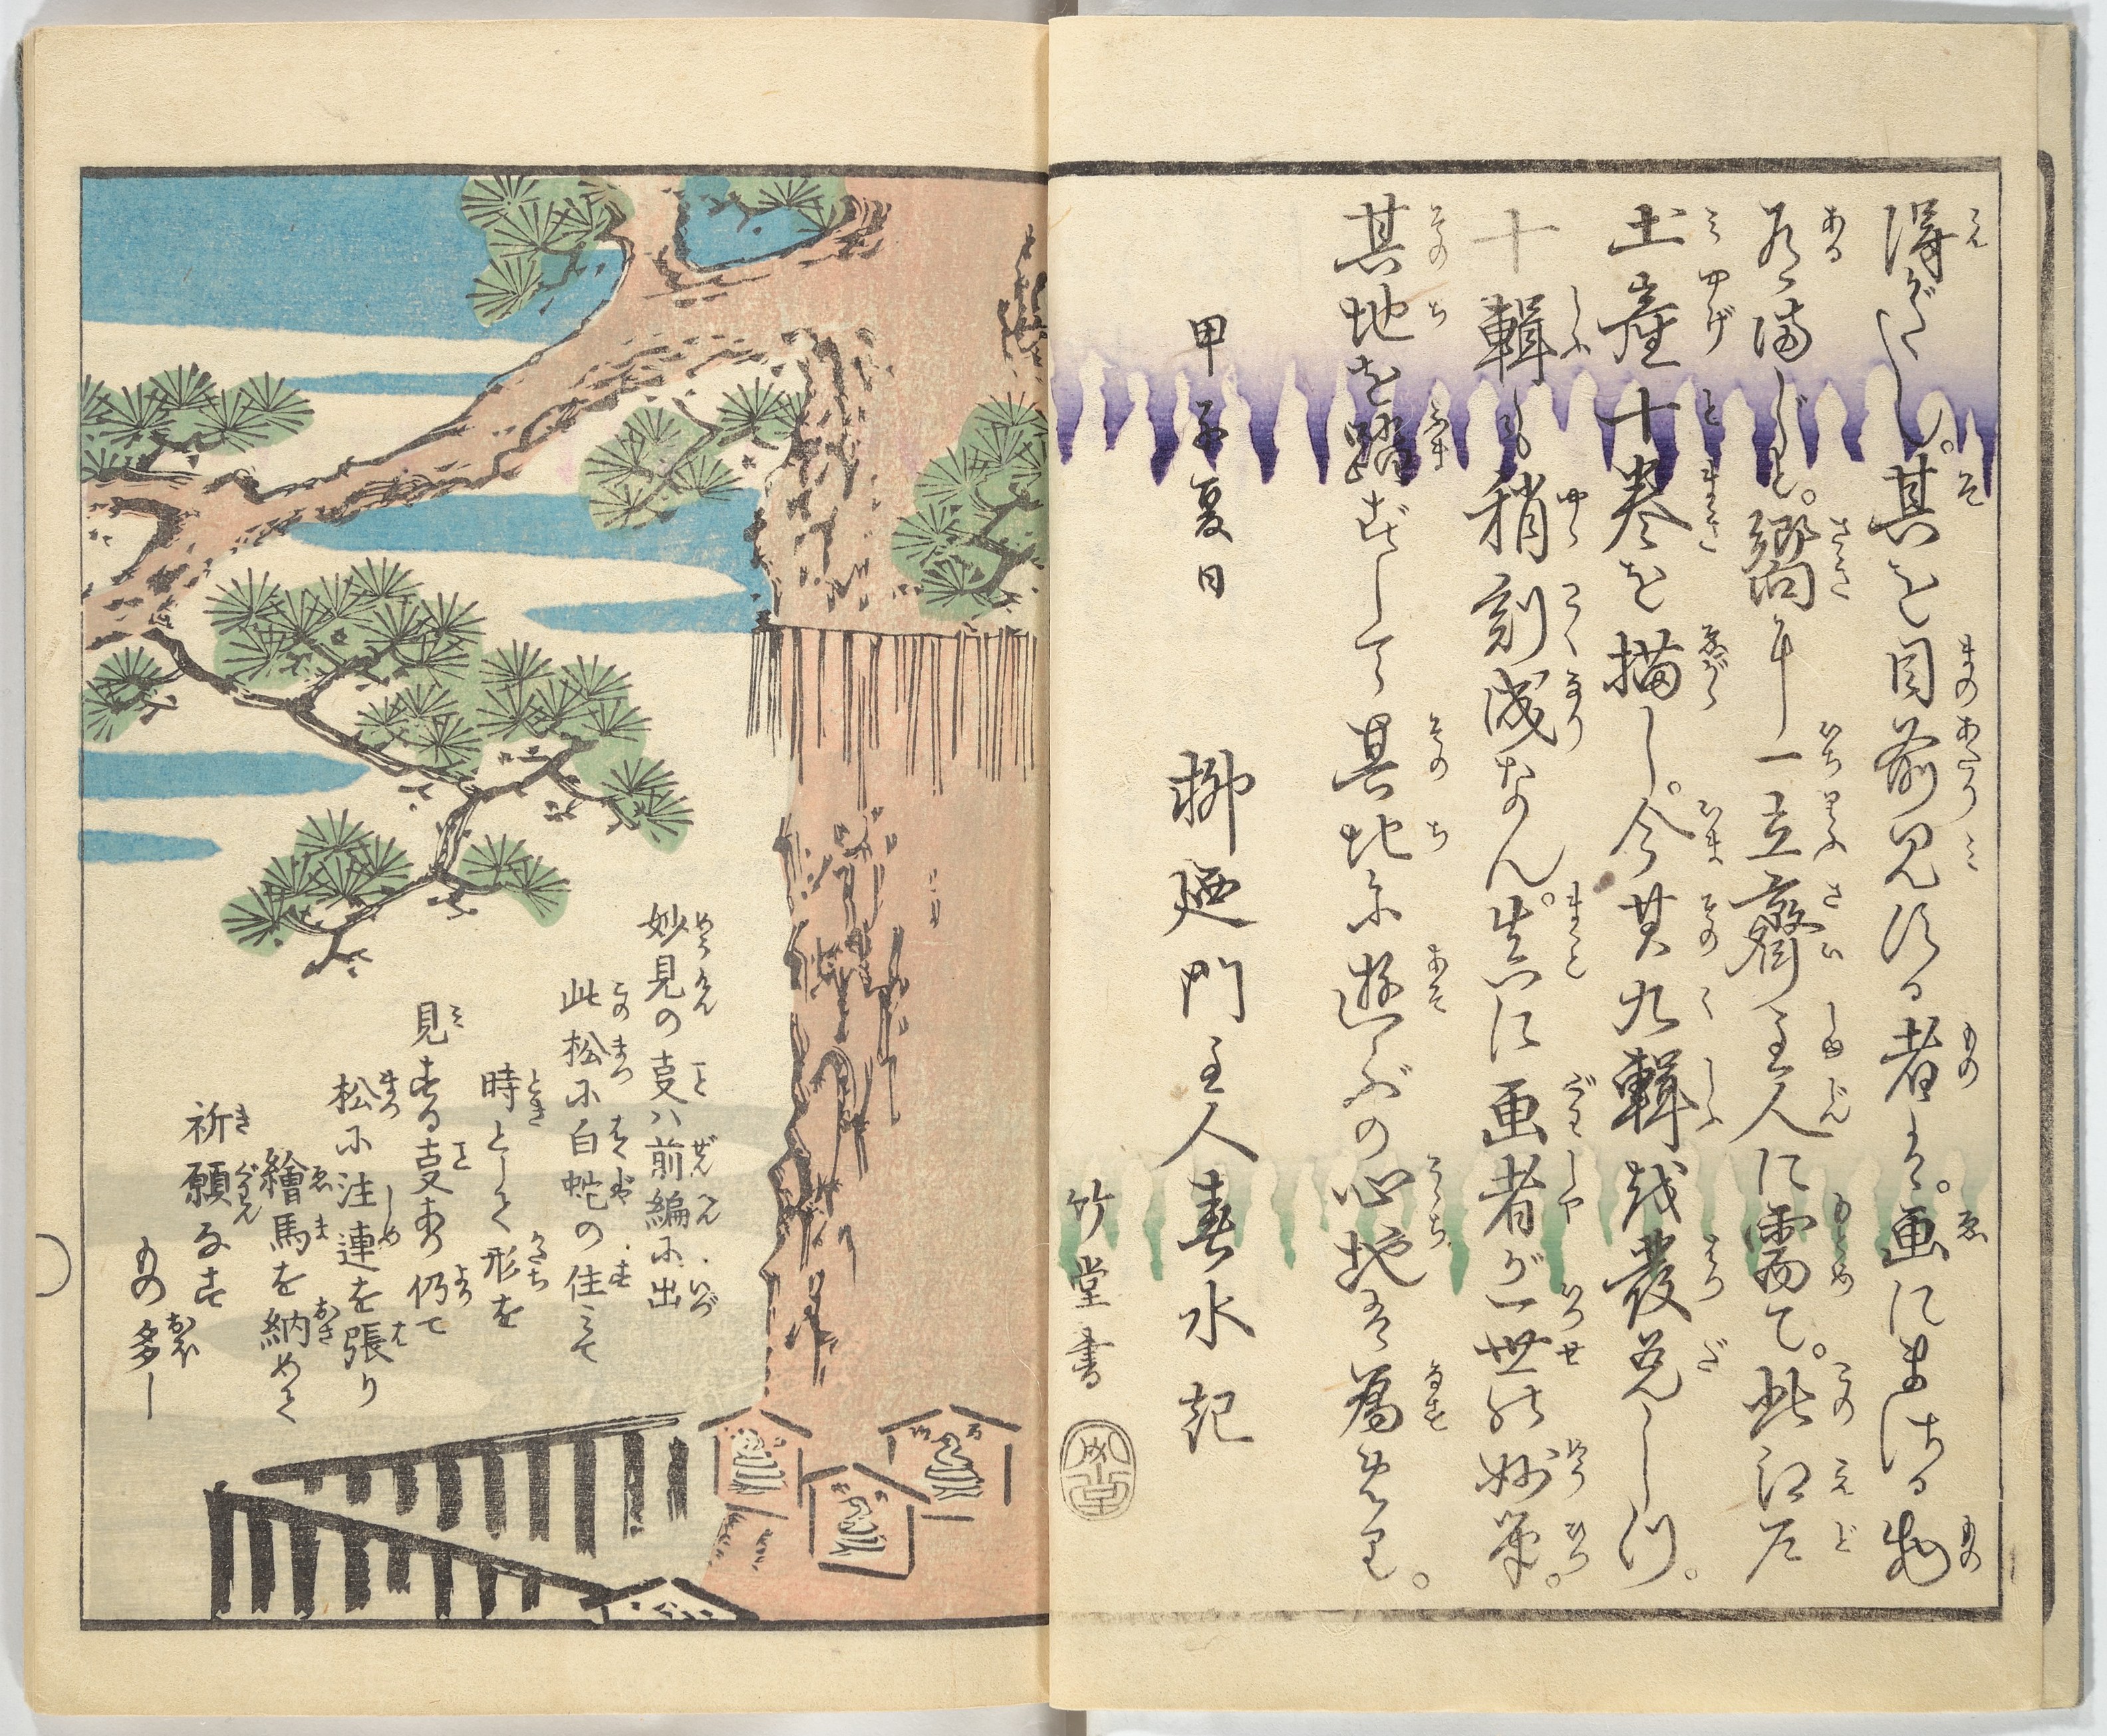 得がたし。其を目前見する者は。画にまさる物
有まじ。嚮に一立齋主人に需て。此江戸
土産十巻を描し。今其九輯を發兌しつ。
十輯も稍刻成なん。真に画者が一世の妙筆。
其地を踏ずして其地に遊ぶの心地を為せり。
甲子夏日　柳廼門主人春水記
竹堂書
妙見の叓ハ前編に出
此松に白蛇の住ミて
時として形を
見する叓あり仍て
松に注連を張り
繪馬を納めて
祈願なす
もの多し